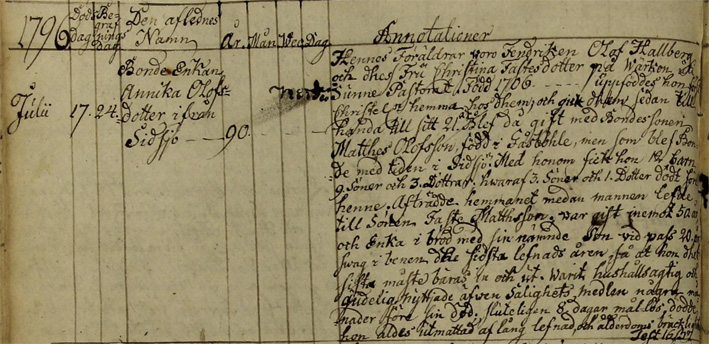 1796
Döds dag
Be graf nings Dag
Den aflednes Namn
År. Mån. Wec. Dag.
Annotationer
Julii
17. 24.
Bonde Enkan
Annika Olofs-
dotter ifrån
Sidsjö
90.
Hennes Föräldrar voro Fendriken Olof Hallberg
och dhes Fru Christina Fastesdotter på Wärkön uti
Sunne Pastorat. Född 1706 uppföddes hon
Christel. hemma hos dhem, och gick dhem sedan till
handa till sitt 21. Blef då gift med Bondesonen
Matthes Olofsson, född i Fastböhle, men som blef Bon
de med tiden i Sidsjö: Med honom fick hon 12 barn
9. Söner och 3. Döttrar, hwaraf 3. Söner och 1. Dotter dödt för
henne. Afträdde hemmanet medan mannen lefde
till Sonen Faste Matthsson, var gift inemot 50 år
och Enka i bröd med sin nämnde Son vid pass 20.
swag i benen dhe sidsta lefnads åren, så at hon dhet
sista måste bäras in och ut. Warit hushållsagtig och
gudelig nyttjade äfven Salighets medlen några må
nader före sin död. Sluteligen 8. dagar mållös, dödde
hon aldeles utmattad af lång lefnad, och ålderdoms bräcklig